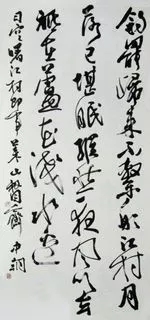 釣罷歸来不繫船江村月
落正堪眠縱然一夜風吹去
祗在蘆花淺水邊
司空曙江村即事